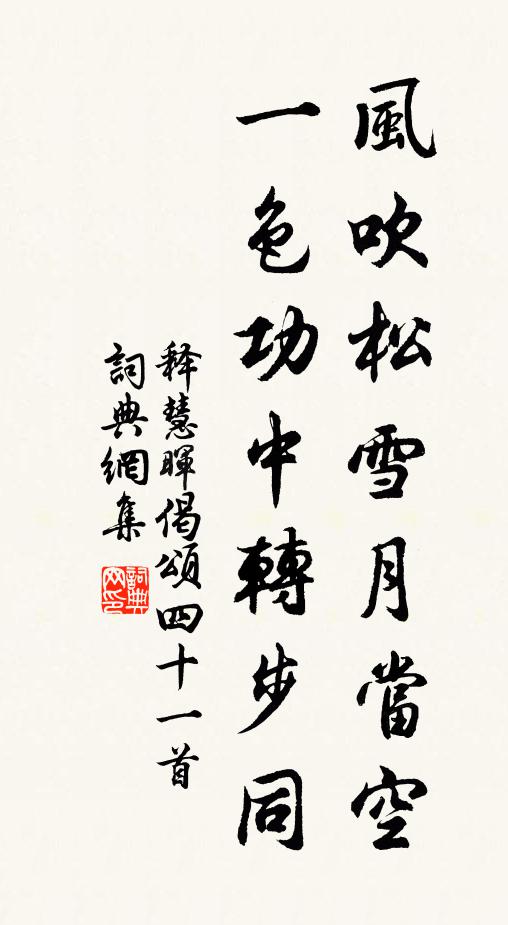 風吹松雪月當空
一色功中轉步同
释慧暉偈頌四十一首
詞典網集
詞典網印